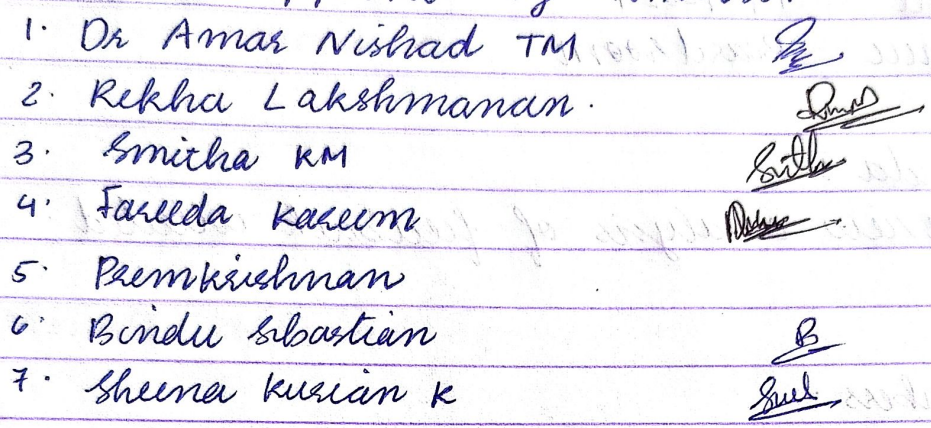 1. Dr Amar Nishad TM
2. Rekha Lakshmanan.
3. Smitha KM
4. Fareeda Kareem
5. Premkrishnan
6. Bindu Sebastian
7. Sheena Kurian K